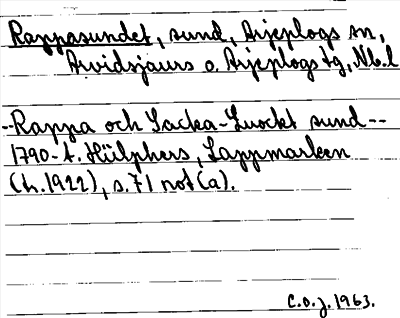 Rappasundet, sund, Arjeplogs sn,
Arvidsjaurs o. Arjeplogs tg, Nb.l
--Rappa och Lacka-Luockt sund--
1790-t. Hülphers, Lappmarken
(tr. 1922), s. 71 not (a).
C.O.J. 1963.